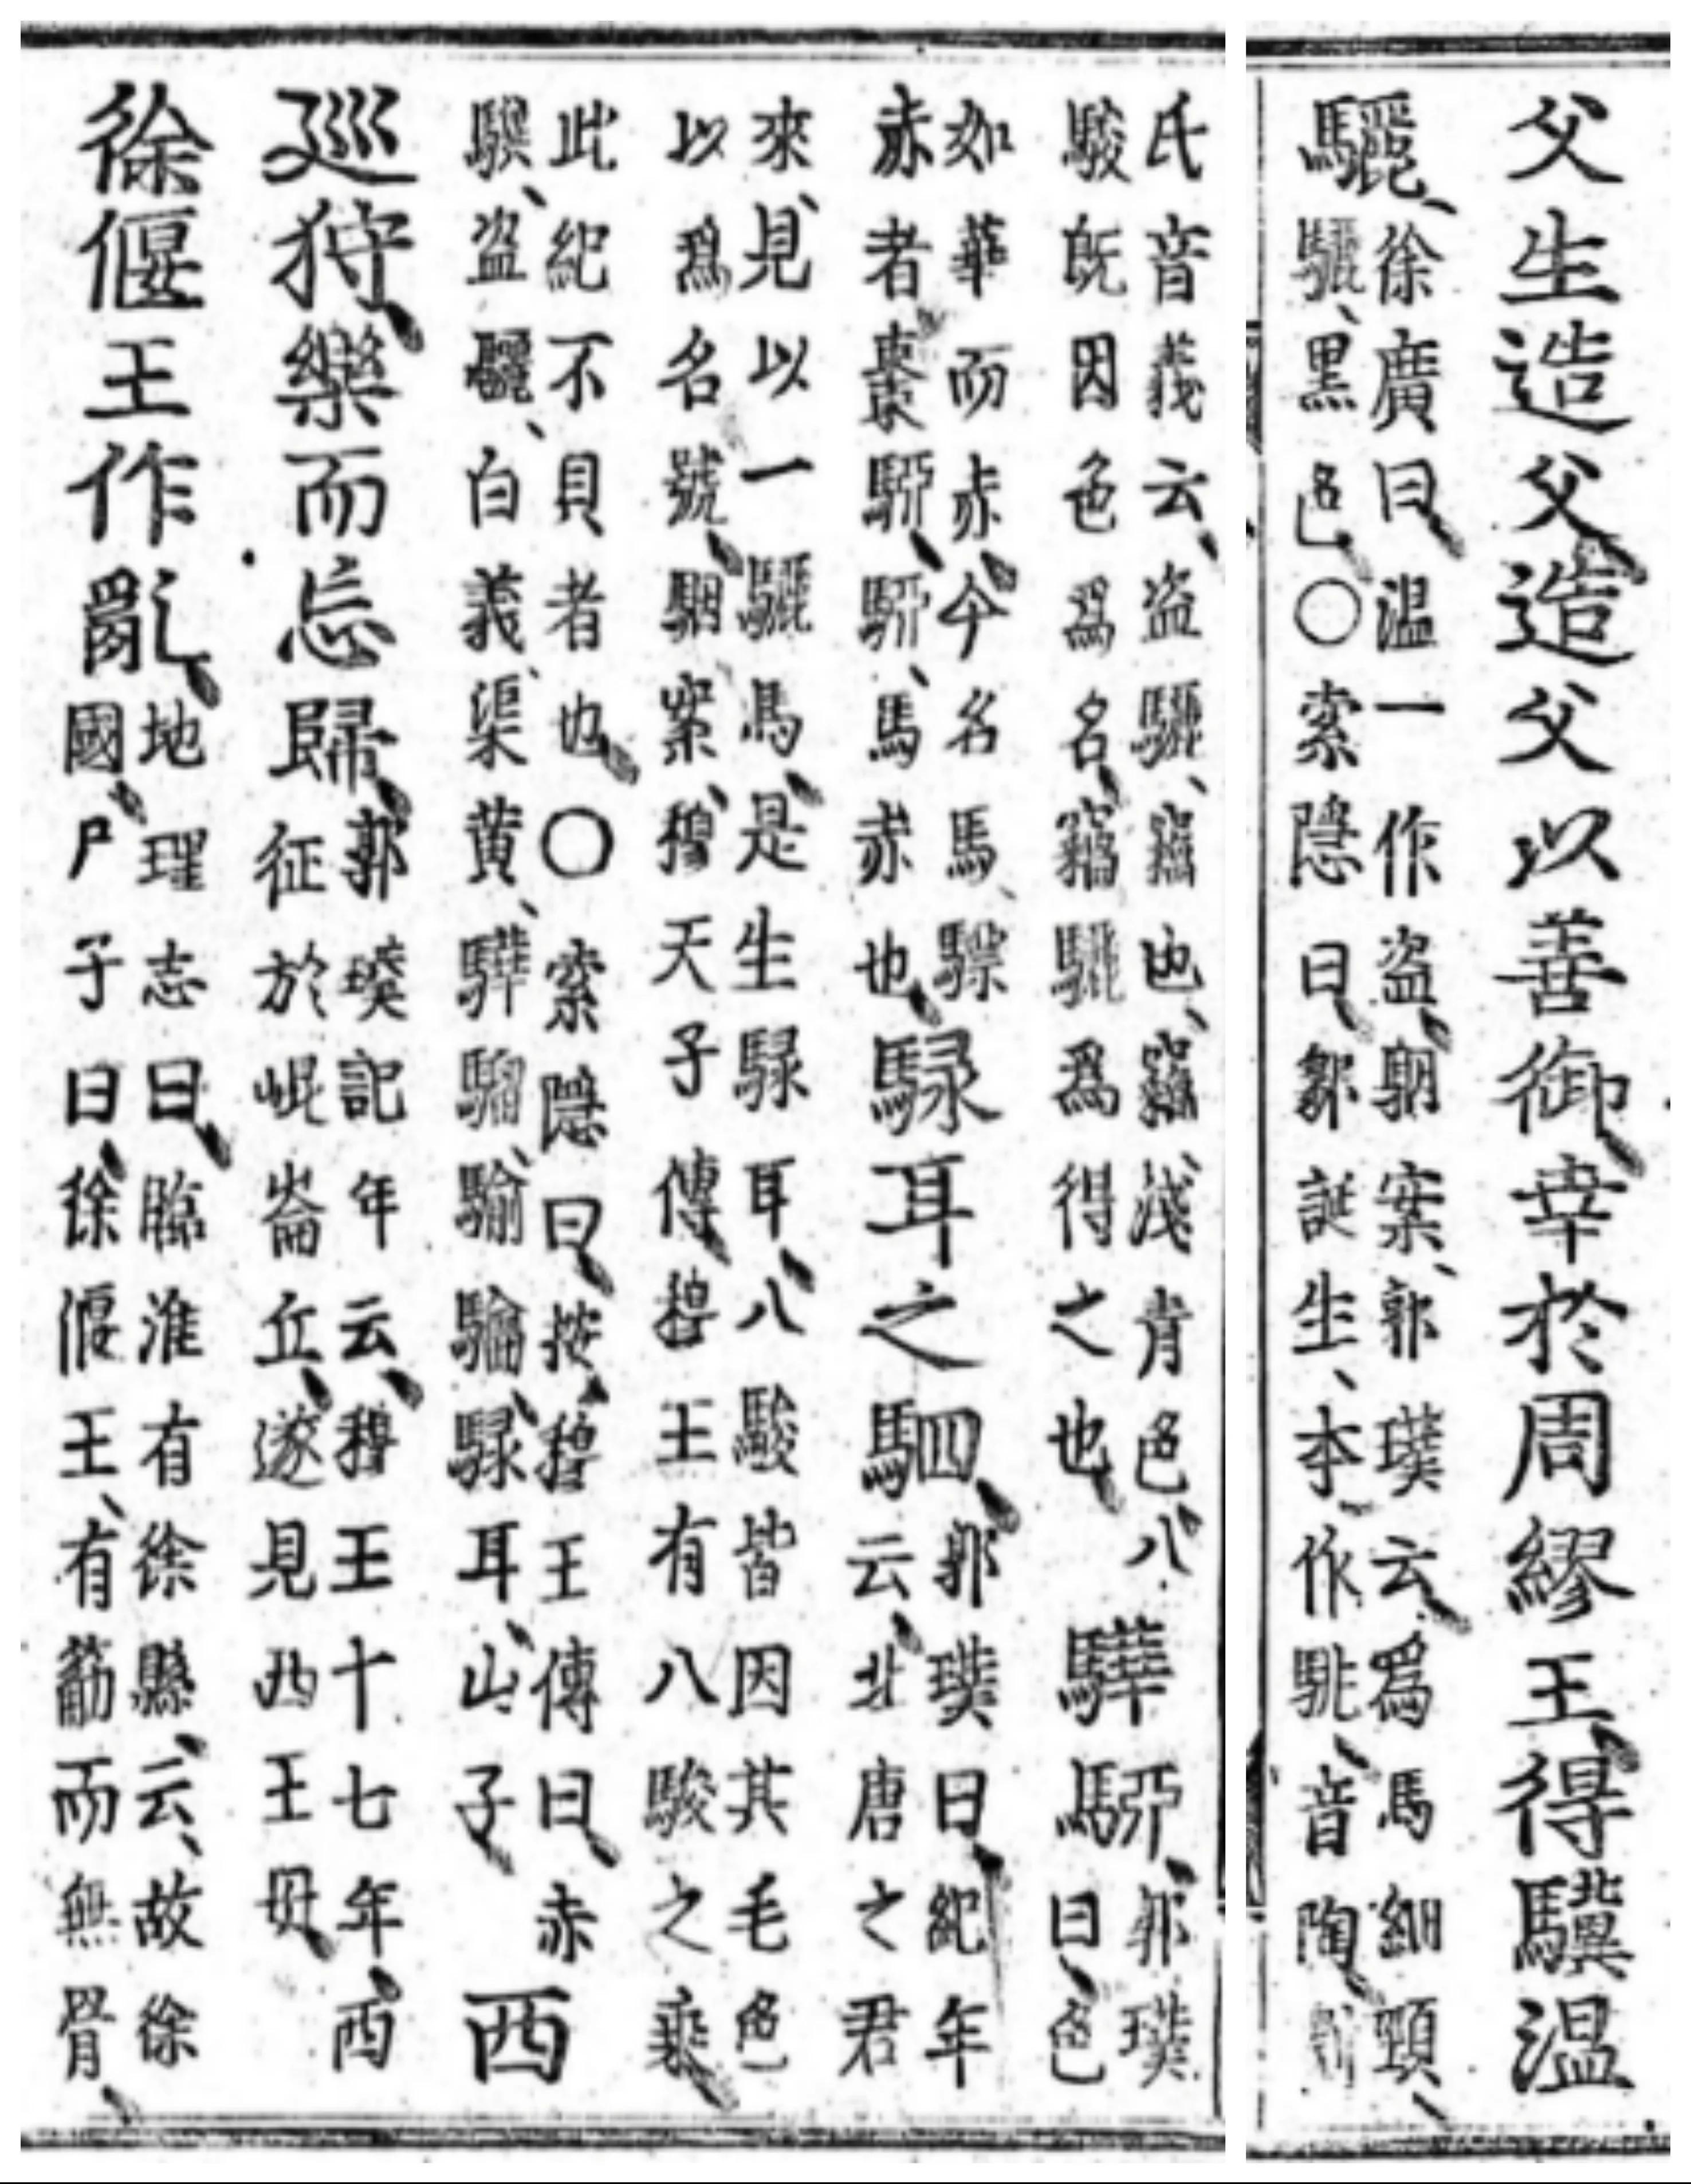 父生造父造父以善御幸於周繆王得驥溫
驪
徐廣曰溫一作盜駰案郭璞云爲馬細頸
驪黑色○索隱曰鄒誕生本作駣音陶劉
氏音義云盜驪竊也竊淺青色八
駿既因色爲名竊驪爲得之也
驊駵
郭璞
曰色
如華而赤今名馬驃
赤者棗駵駵馬赤也
騄耳之駟
郭璞曰紀年
云北唐之君
來見以一驪馬是生騄耳八駿皆因其毛色
以爲名號駰案穆天子傳穆王有八駿之乘
此紀不具者也○索隱曰按穆王傳曰赤
驥盜驪白義渠黃驊騮騟騄耳山子
西
巡狩樂而忘歸
郭璞記年云穆王十七年西
征於崐崙丘遂見西王母
徐偃王作亂
地理志曰臨淮有徐縣云故徐
國尸子曰徐偃王有筋而無骨